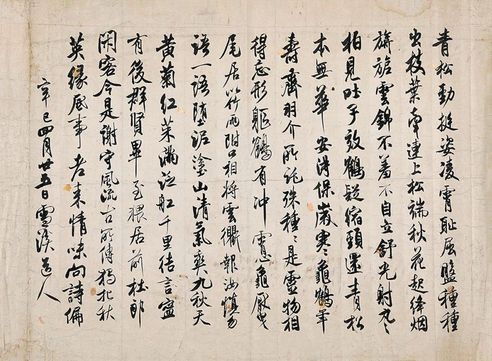 青松勁挺姿凌霄恥屈盤種種
出枝葉牽連上松端秋花起絳烟
旖旎雲錦不羞不自立舒光射丸丸
柏見吐子效鶴疑縮頭還青松
本無華安得保歲寒龜鶴年
壽齊羽介所託殊種種是靈物相
得忘形軀鶴有冲霄龜厭曳
尾居以竹兩附口相將雲衢報汝慎勿
語一語墮泥塗山清氣爽九秋天
黃菊紅茱滿泛船千里結言寧
有後群賢畢至猥居前杜郎
閑客今是謝守風流古所傳獨把秋
英緣底事老來情味向詩偏
辛巳四月廿五日雪道人